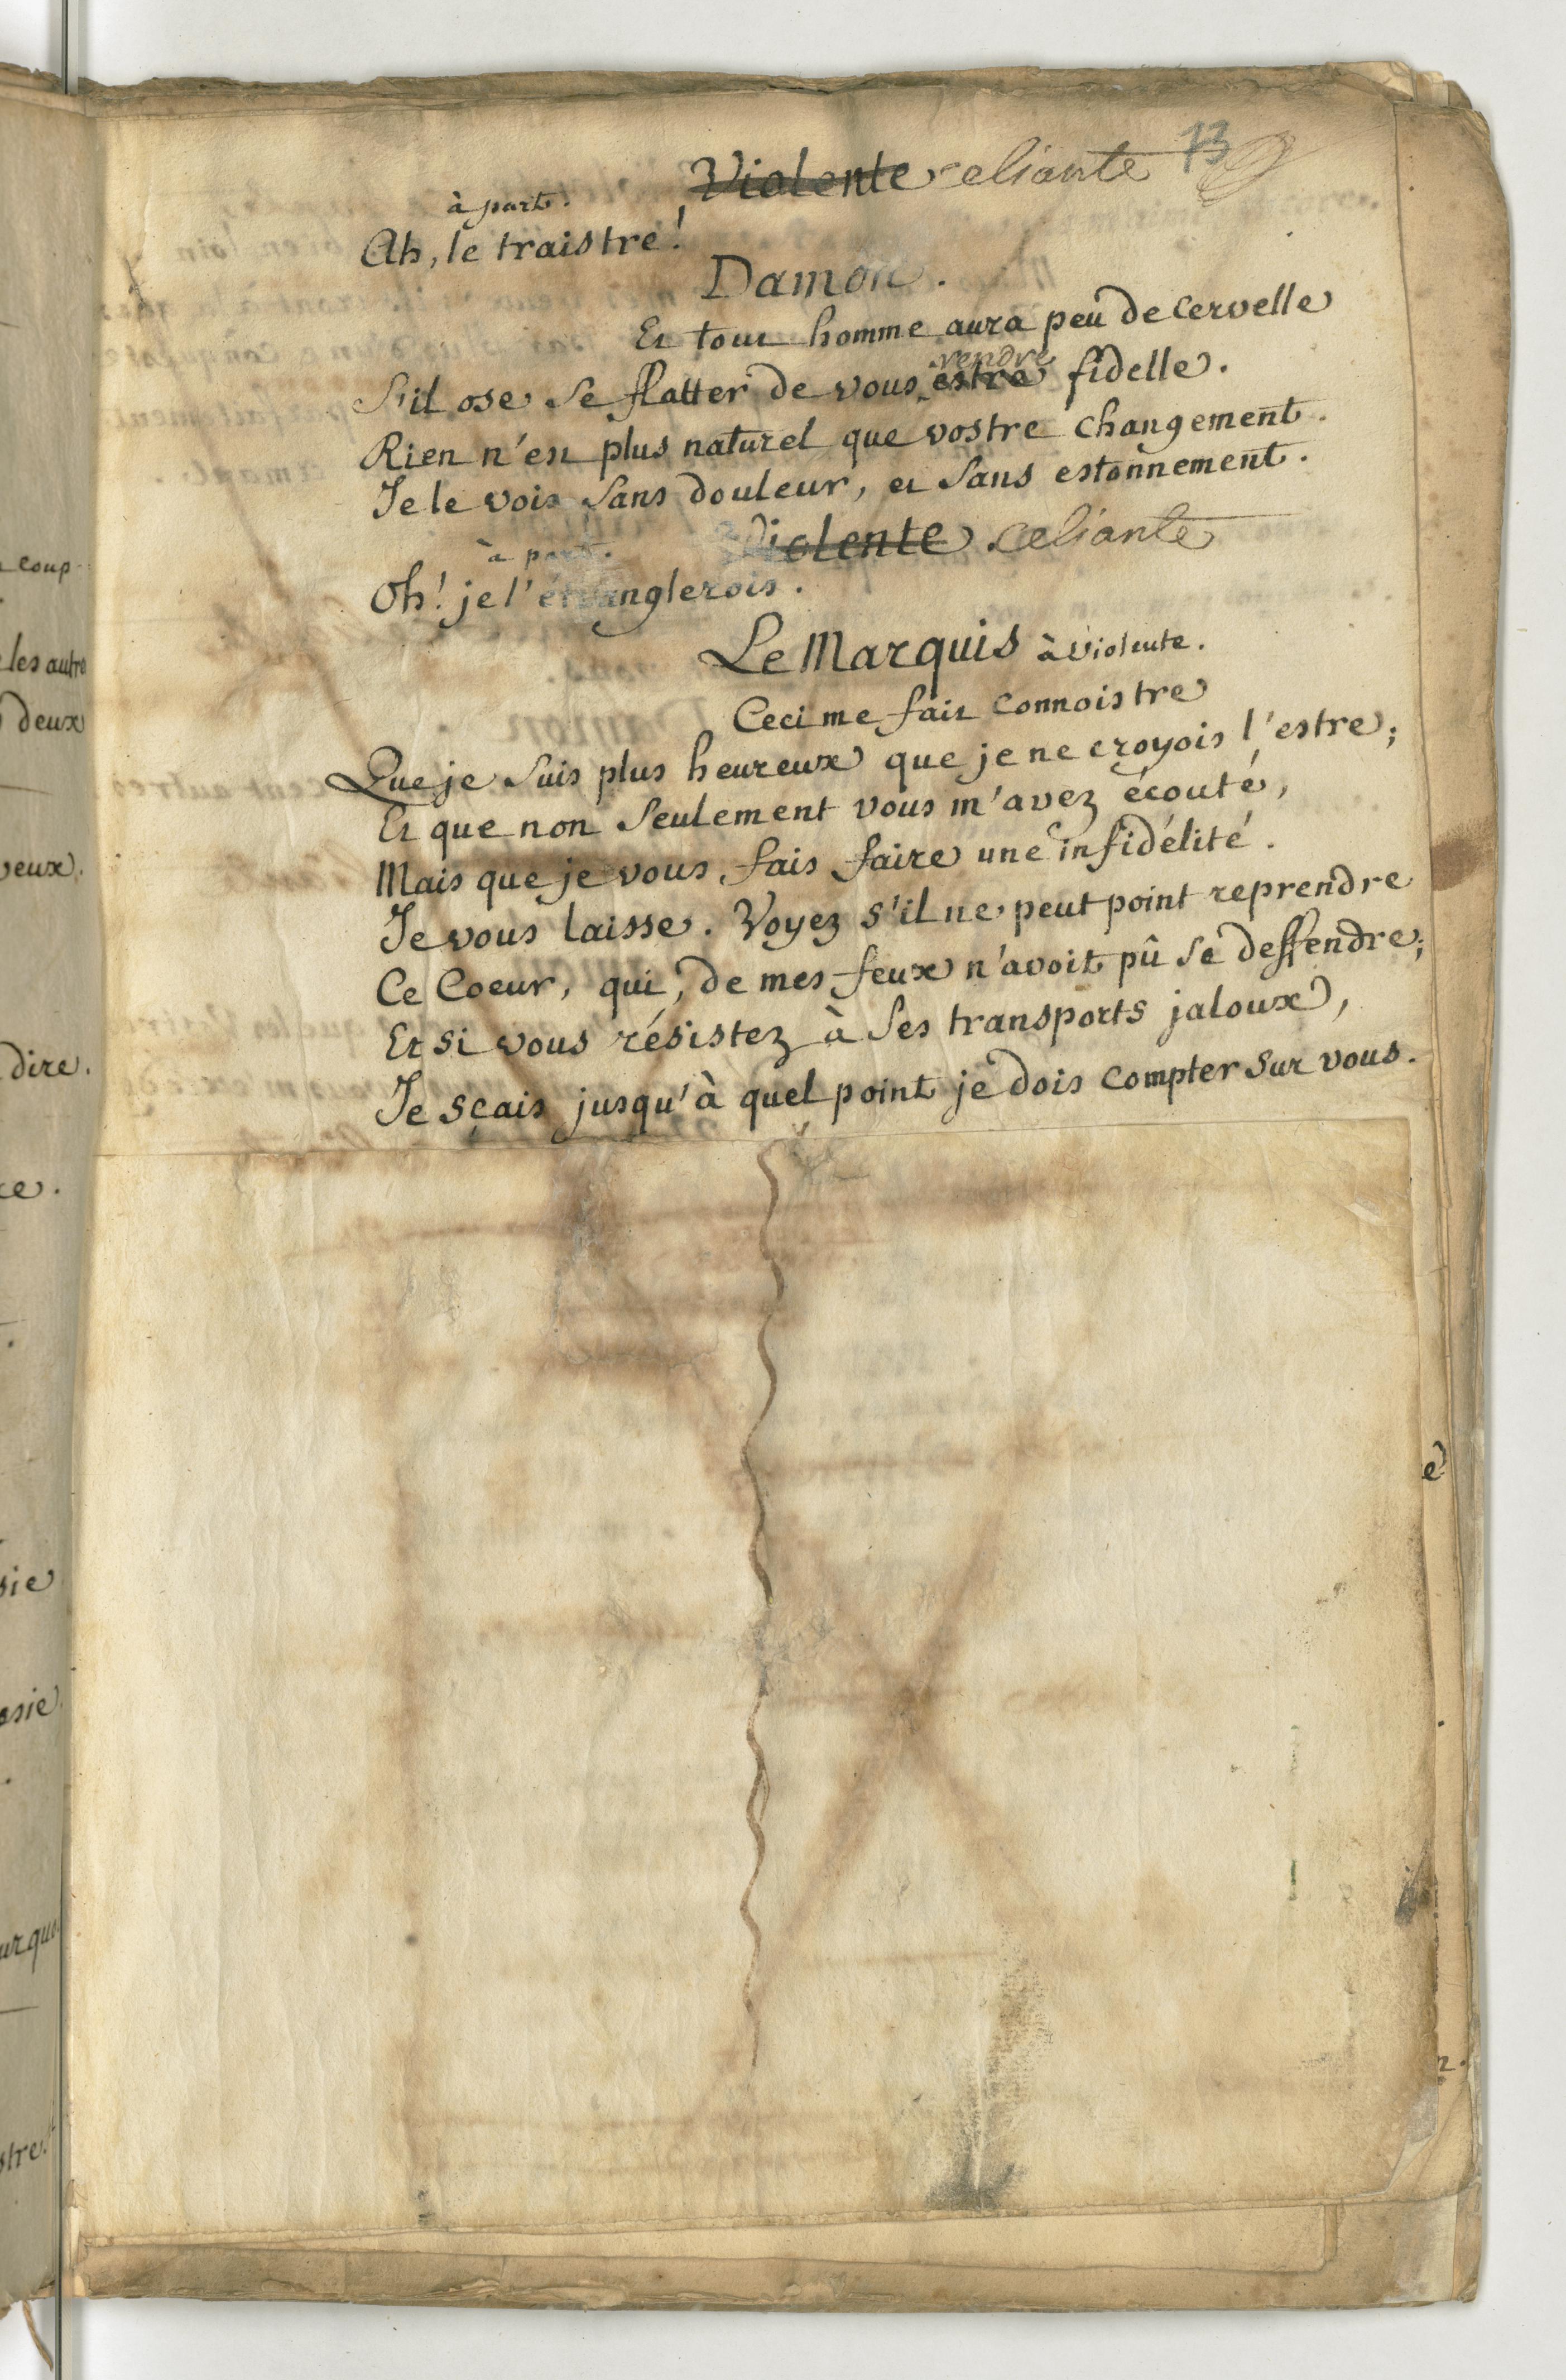 73
Violente celiante
à part.
Ah, le traistre!
Damon.
Et tout homme aura peu de cervelle
rendre
S'il ose se flatter de vous estre fidelle.
Rien n'est plus naturel que vostre changement.
Je le vois sans douleur, et sans estonnement.
Violente celiante
à part.
Oh! je l'étranglerois.
Le Marquis à Violente.
Ceci me fait connoistre
Que je suis plus heureux que je ne croyois l'estre;
Et que non seulement vous m'avez écouté,
Mais que je vous fais faire une infidélité.
Je vous laisse. Voyez s'il ne peut point reprendre
Ce Coeur, qui, de mes feux n'avoit pû se deffendre;
Et si vous résistez à ses transports jaloux,
Je sçais jusqu'à quel point je dois compter sur vous.
coup
les autre
deux
veux.
dire.
ce.
sie
asie
urquo
stre.
e